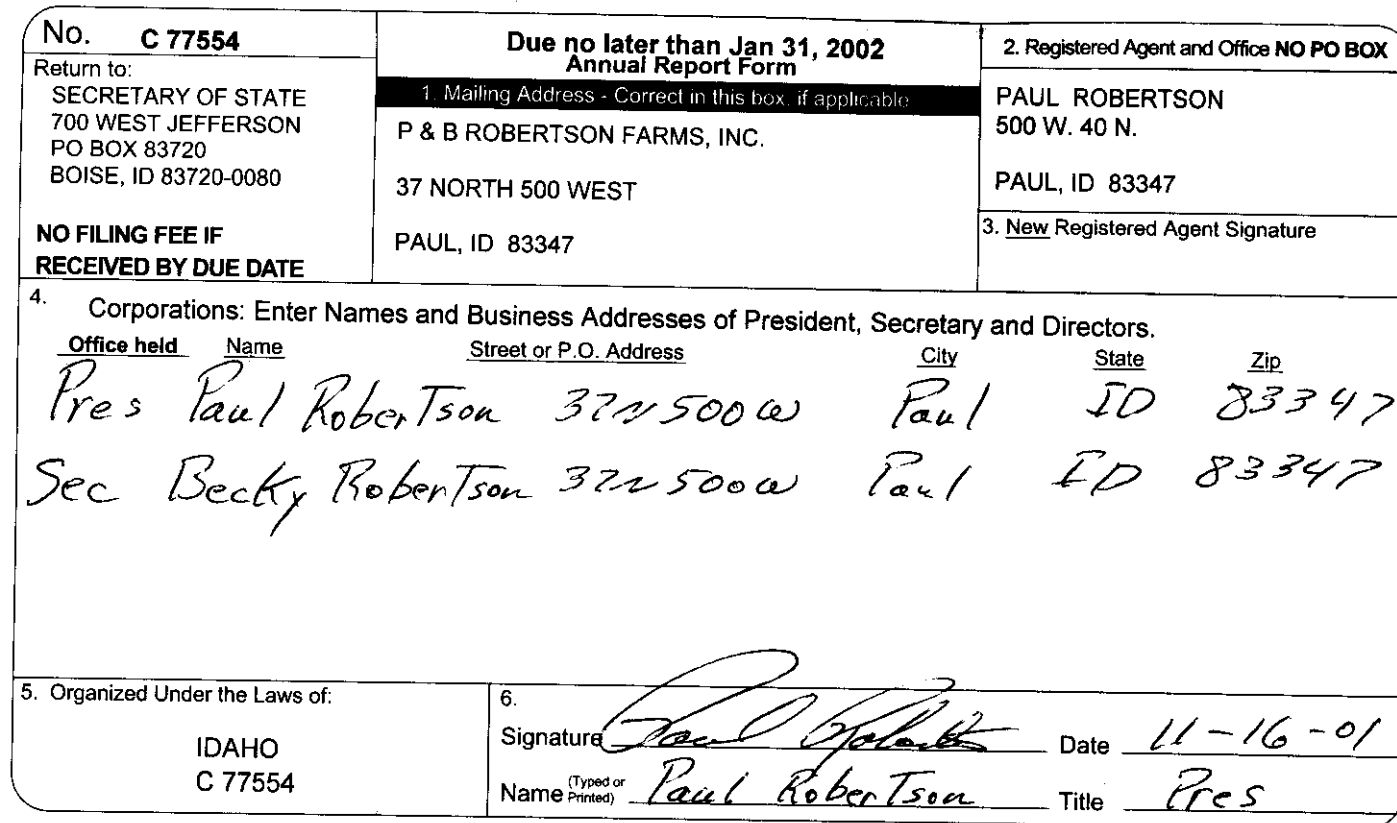 No. C 77554
Return to:
SECRETARY OF STATE
700 WEST JEFFERSON
PO BOX 83720
BOISE, ID 83720-0080
NO FILING FEE IF
RECEIVED BY DUE DATE
Due no later than Jan 31, 2002
Annual Report Form
1. Mailing Address - Correct in this box, if applicable
P & B ROBERTSON FARMS, INC.
37 NORTH 500 WEST
PAUL, ID 83347
2. Registered Agent and Office NO PO BOX
PAUL ROBERTSON
500 W. 40 N.
PAUL, ID 83347
3. New Registered Agent Signature
4. Corporations: Enter Names and Business Addresses of President, Secretary and Directors.
Office held Name Street or P.O. Address City State Zip
Pres Paul Robertson 37N 500W Paul ID 83347
Sec Becky Robertson 37N 500W Paul ID 83347
5. Organized Under the Laws of:
IDAHO
C 77554
6.
Signature Paul Robertson Date 11-16-01
Name (Typed or Printed) Paul Robertson Title Pres